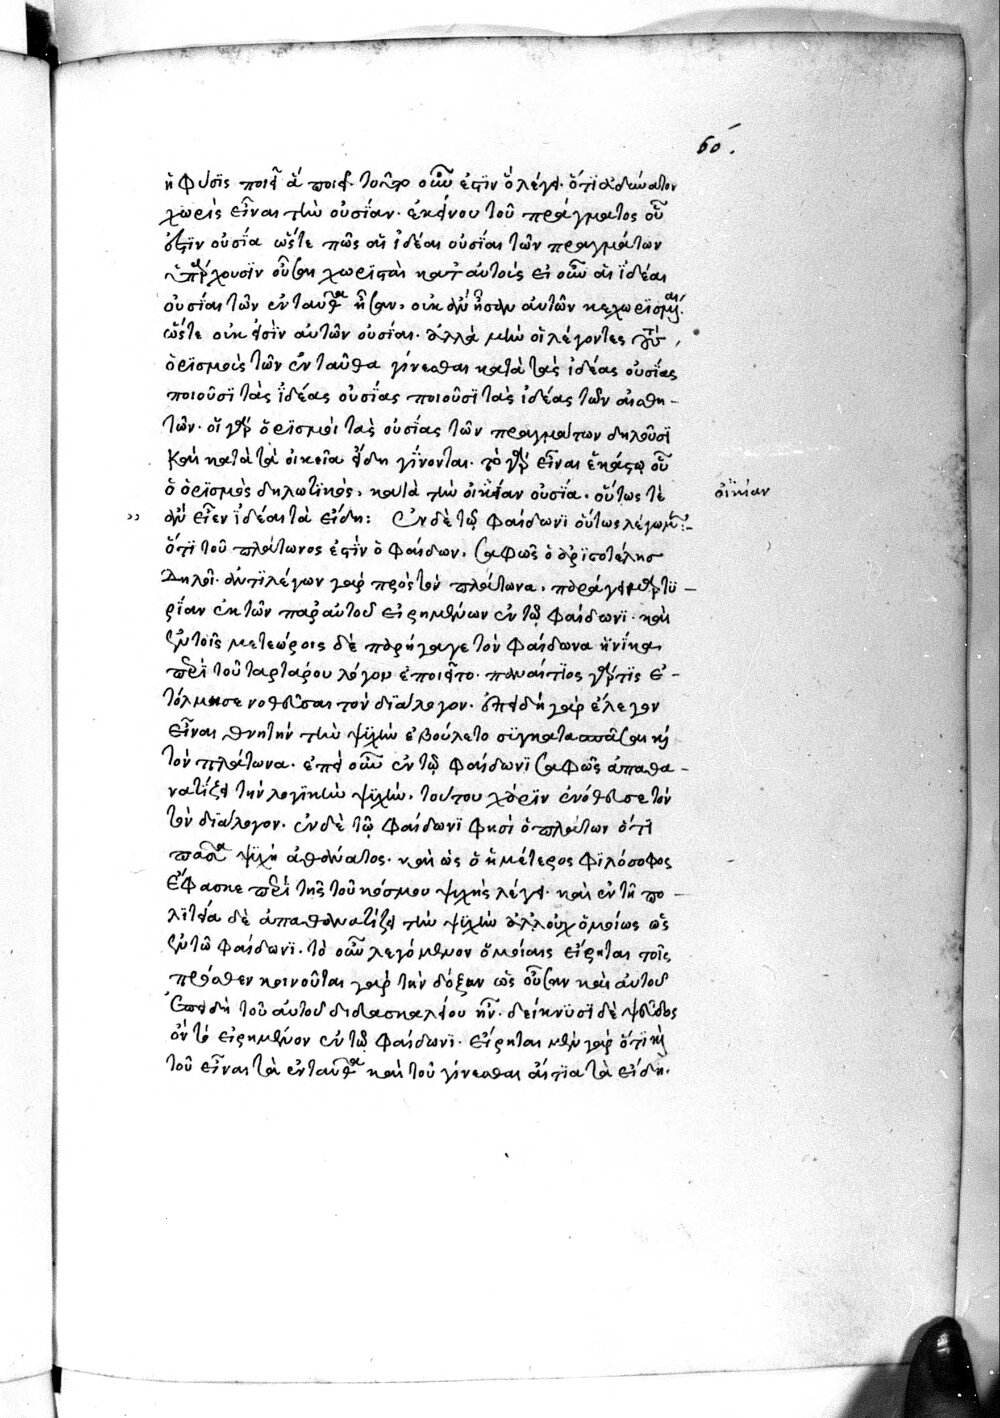 60.
ἡ φύσϊς ποιεῖ ἃ ποιεῖ. τοῦτο οὖν ἐστϊν ὃ λέγει. ὅτι ἀδύνατον
χωρὶς εἶναι τὴν οὐσΐαν. ἐκείνου τοῦ πράγματος οὗ
ἐστϊν οὐσΐα ὥστε πῶς αἱ ἰδέαι οὐσΐαι τῶν πραγμάτων
ὑπάρχουσϊν οὖσαι χωρϊσταὶ κατ αὐτούς εἰ οὖν αἱ ϊδέαι
οὐσΐαι τῶν ἐνταῦθα ἦσαν, οὐκ ἂν ἦσαν αὐτῶν κεχωρϊσμέναι.
ὥστε οὐκ εἰσὶν αὐτῶν οὐσΐαι. ἀλλὰ μὴν οἱ λέγοντες τοὺς
ὁρϊσμοὺς τῶν ἐνταῦθα γίνεσθαι κατὰ τὰς ἰδέας οὐσΐας
ποιοῦσϊ τὰς ϊδέας οὐσΐας ποιοῦσϊ τὰς ἰδέας τῶν αἰσθη-
τῶν. οἱ γὰρ ὁρϊσμοὶ τὰς οὐσΐας τῶν πραγμάτων δηλοῦσϊ
Καὶ κατὰ τὰ οἰκεῖα εἴδη γΐνονται. τὸ γὰρ εἶναι ἑκάστῳ οὗ
ὁ ὁρϊσμὸς δηλωτϊκὸς, κατὰ τὴν οἰκείαν οὐσΐα. οὕτως τὲ
οἰκίαν
ἂν εἶεν ϊδέαι τὰ εἴδη: Ἐν δὲ τῷ Φαίδωνϊ οὕτως λέγομεν:-
ὅτϊ τοῦ πλάτωνος ἐστϊν ὁ Φαίδων, Σαφῶς ὁ ἀρϊστοτέλης
δηλοῖ. ἀντϊλέγων γὰρ πρὸς τὸν πλάτωνα, παράγει μαρτϋ-
ρΐαν ἐκ τῶν παρ αὐτοῦ εἰρημένων ἐν τῷ Φαίδωνϊ. καὶ
ἐν τοῖς μετεώροις δὲ παρήγαγε τὸν Φαίδωνα ἡνΐκα
περὶ τοῦ ταρτάρου λόγον ἐποιεῖτο. παναίτϊος γάρ τϊς ἐ-
τόλμησε νοθεῦσαι τὸν δϊάλογον. ἐπειδὴ γὰρ ἔλεγεν
εἶναι θνητὴν τὴν ψϋχὴν ἐβούλετο συγκατασπάσαι καὶ
τὸν πλάτωνα. ἐπεὶ οὖν ἐν τῷ Φαίδωνϊ Σαφῶς ἀπαθα-
νατΐζει τὴν λογϊκὴν ψϋχὴν, τούτου χάρϊν ἐνόθευσε τὸν
τὸν δϊάλογον. ἐν δὲ τῷ Φαίδωνϊ φησὶ ὁ πλάτων ὅτϊ
πᾶσα ψϋχὴ ἀθάνατος. καὶ ὡς ὁ ἡμέτερος φϊλόσοφος
ἔφασκε περὶ τῆς τοῦ κόσμου ψυχῆς λέγει. καὶ ἐν τῇ πο-
λϊτείᾳ δὲ ἀπαθανατΐζει τὴν ψϋχὴν ἀλλ οὐχ ὁμοίως ὡς
ἐν τῷ Φαίδωνϊ. τὸ οὖν λεγόμενον ὁμοίαις εἴρηται τοῖς
πρόσθεν κοινοῦται γὰρ τὴν δόξαν ὡς οὖσαν καὶ αὐτοῦ
Ἐπειδὴ τοῦ αὐτοῦ διδασκαλείου ἦν. δείκνϋσϊ δὲ ψεῦδος
ὂν τὸ εἰρημένον ἐν τῷ Φαίδωνϊ. εἴρηται μὲν γὰρ ὅτϊ καὶ
τοῦ εἶναι τὰ ἐνταῦθα καὶ τοῦ γίνεσθαι αἴτϊα τὰ εἴδη.